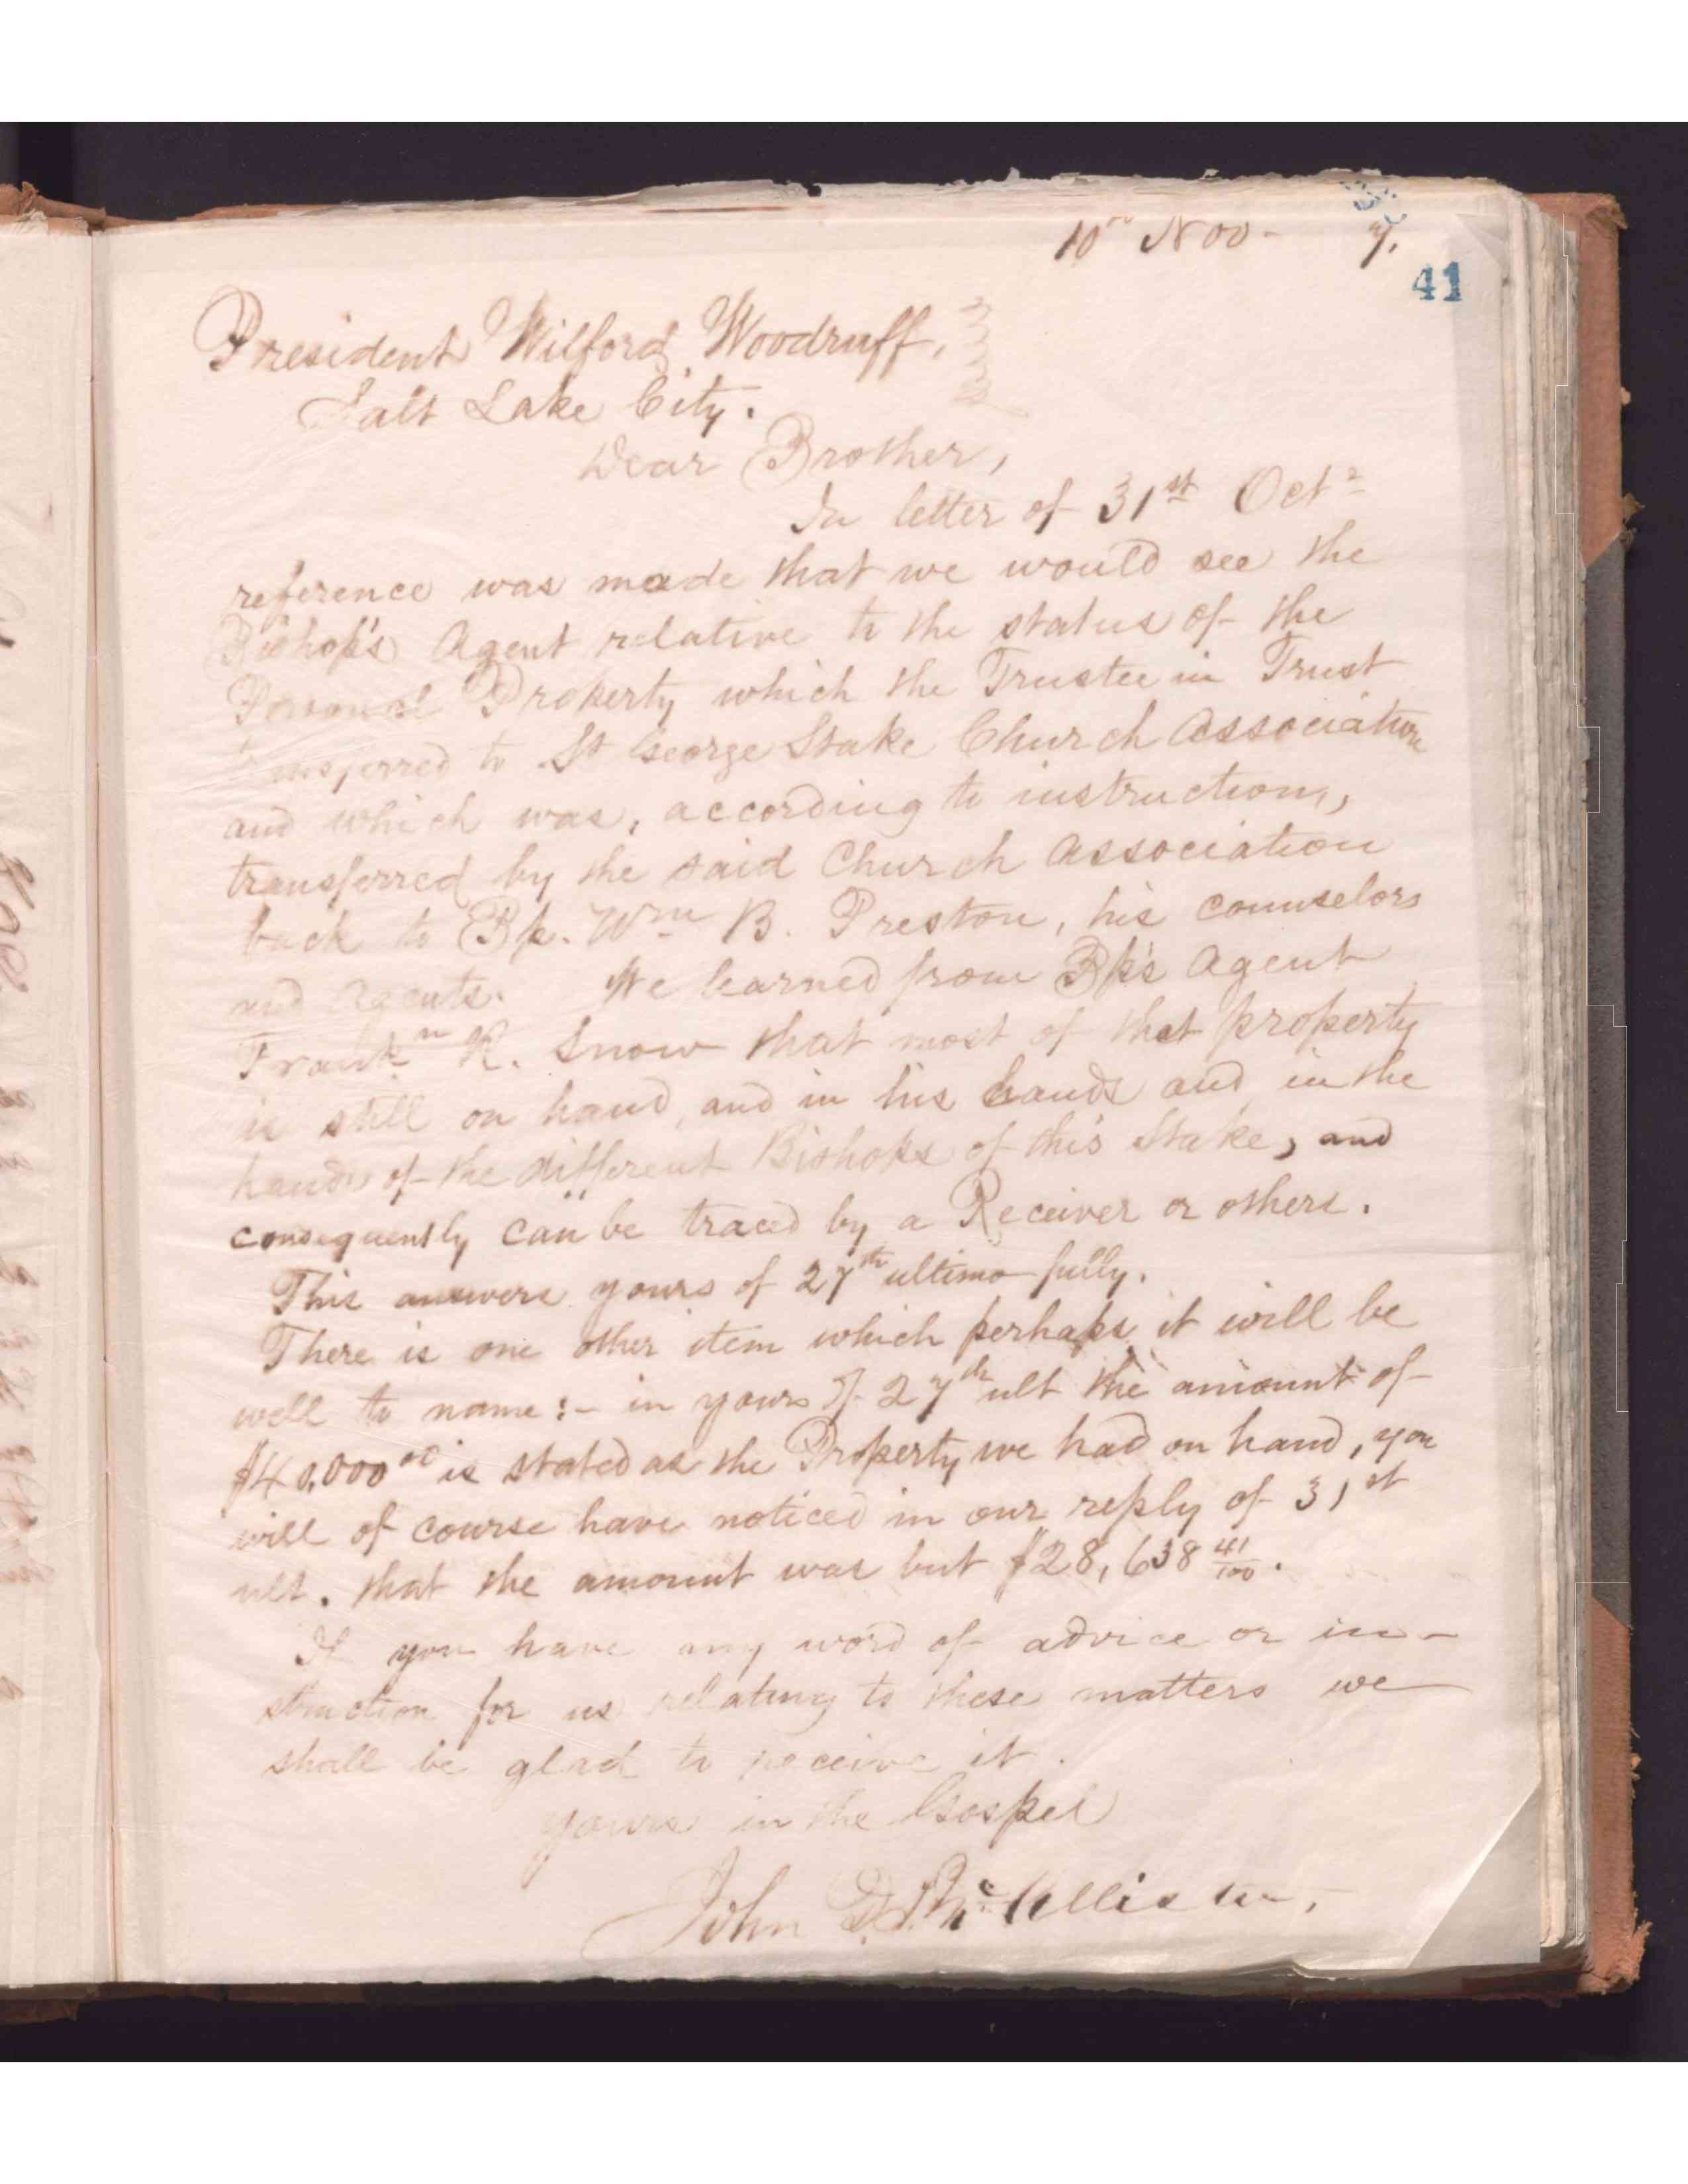 10th Nov - 7.
41
President Wilford Woodruff,
Salt Lake City.
Dear Brother,
In letter of 31st Octr
reference was made that we would see the
Bishop's Agent relative to the status of the
Personal Property which the Trustee in Trust
transferred to St George Stake Church Association
and which was, according to instructions,
transferred by the said Church Association
back to Bp. Wm B. Preston, his counselors
and Agents. We learned from Bp's Agent
Frankn R. Snow that most of that property
is still on hand, and in his hands and in the
hands of the different Bishops of this Stake, and
consequently can be traced by a Receiver or others.
This answers yours of 27th ultimo fully.
There is one other item which perhaps it will be
well to name:- in yours of 27th ult the amount of
$40,000 00 is stated as the Property we had on hand, you
will of course have noticed in our reply of 31st
ult. that the amount was but $28,638 41/100.
If you have any word of advice or in-
struction for us relating to these matters we
shall be glad to receive it.
yours in the Gospel
John D. T. McAllister,